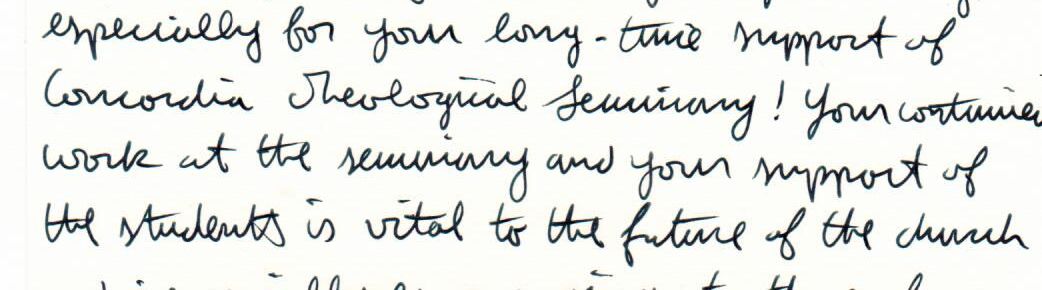 especially for your long-time support of
Concordia Theological Seminary! Your continued
work at the seminary and your support of
the students is vital to the future of the church